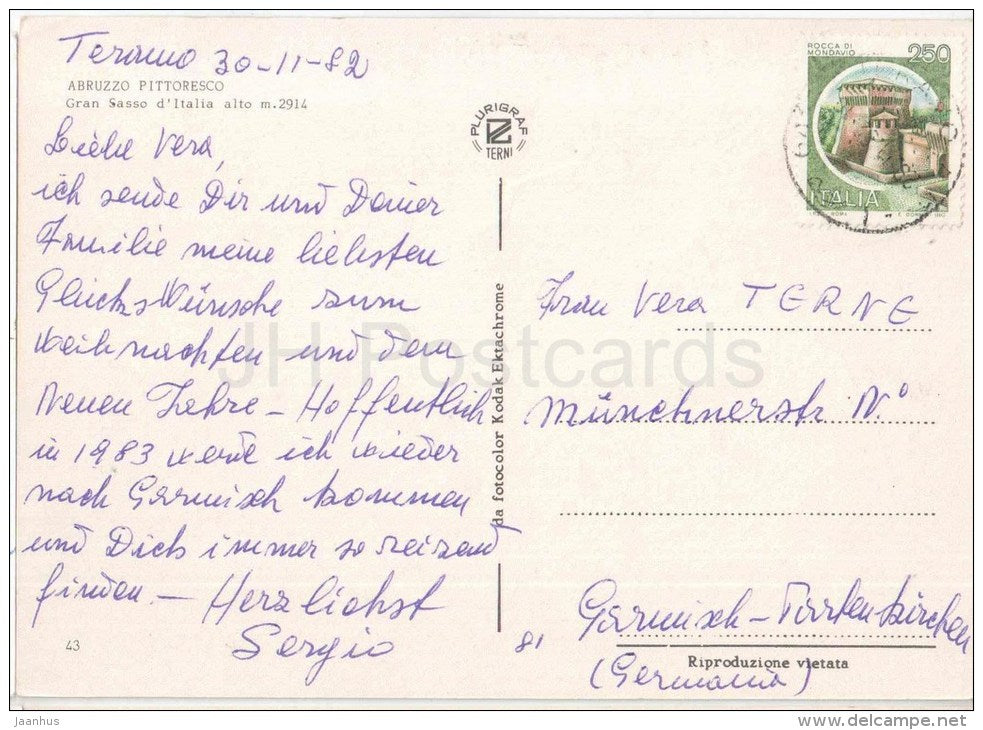 Teramo 30-11-82
ABRUZZO PITTORESCO
Gran Sasso d'Italia alto m.2914
Liebe Vera,
ich sende Dir und Deiner
Familie meine liebsten
Glücks Wünsche zum
Weihnachten und dem
Neuen Jahre - Hoffentlich
in 1983 werde ich wieder
nach Garmisch kommen
und Dich immer so reizend
finden. - Herzlichst
Sergio
43
PLURIGRAF
TERNI
da fotocolor Kodak Ektachrome
ROCCA DI
MONDAVIO
250
ITALIA
Frau Vera TERNE
Münchnerstr N.°
81
Garmisch-Partenkirchen
(Germania)
Riproduzione vietata
JH Postcards
jaanhus
www.delcampe.net